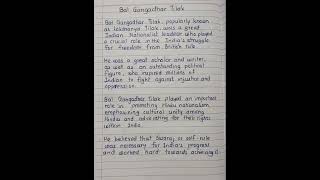 Bal Gangadhar Tilak
Bal Gangadhar Tilak, popularly known
as Lokmanya Tilak, was a great
Indian Nationalist leadher who played
a crucial role in the India's struggle
for freedom from British rule.
He was a great scholar and writer,
as well as an outstanding political
figure, who inspired millions of
Indian to fight against injustice and
oppression.
Bal Gangadhar Tilak played an important
role in promoting Hindu nationalism,
emphasizing cultural unity among
Hindus and advocating for their rights
within India.
He believed that Swaraj, or self-rule
was necessary for India's progress
and worked hard towards achieving it.